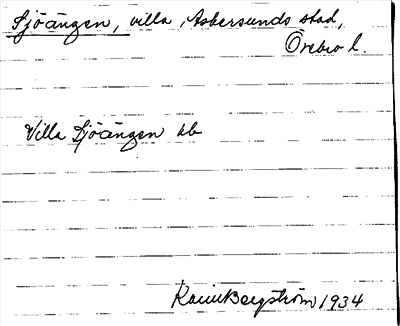 Sjöängen, villa, Askersunds stad,
Örebro l.
Villa Sjöängen kb
Karin Bergström 1934